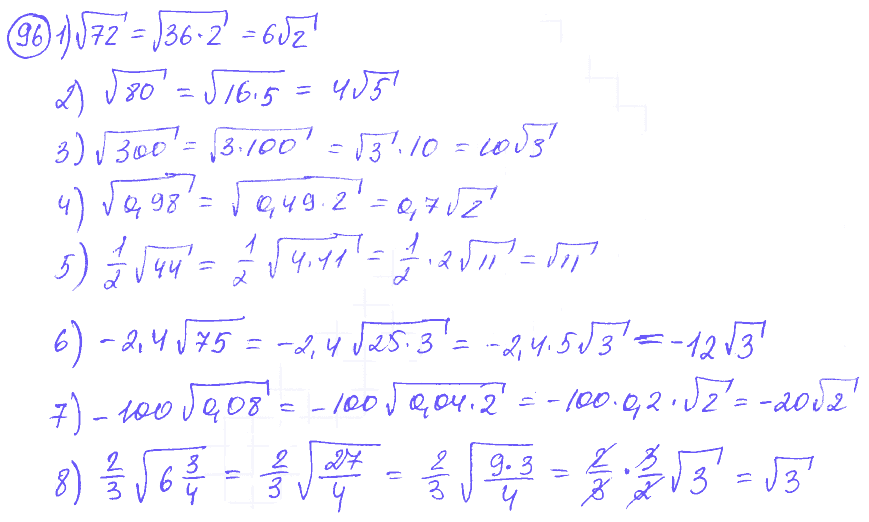 96 1) √72 = √36·2 = 6√2
2) √80 = √16·5 = 4√5
3) √300 = √3·100 = √3·10 = 10√3
4) √0,98 = √0,49·2 = 0,7√2
5) 1/2 √44 = 1/2 √4·11 = 1/2 · 2√11 = √11
6) -2,4√75 = -2,4√25·3 = -2,4·5√3 = -12√3
7) -100√0,08 = -100√0,04·2 = -100·0,2·√2 = -20√2
8) 2/3 √6 3/4 = 2/3 √27/4 = 2/3 √9·3/4 = 2/3 · 3/2 √3 = √3